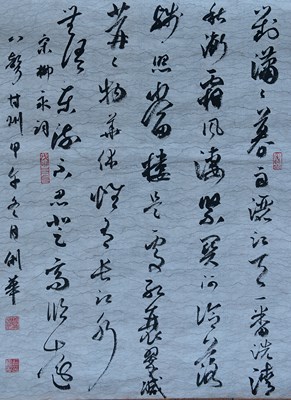 對瀟〻暮雨灑江天一番洗清
秋漸霜風淒緊關河冷落
殘照當樓是處紅衰翠減
苒〻物華休惟有長江水
無語東流不忍登高臨遠
宋柳永詞
八聲甘州甲午冬月俐華